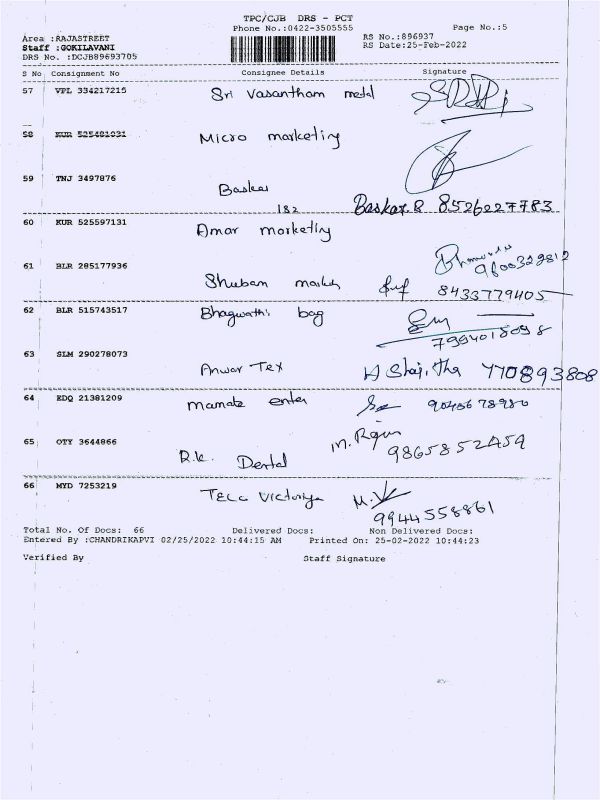 TPC/CJB DRS - PCT
Phone No.:0422-3505555 Page No.:5
Area :RAJASTREET RS No.:896937
Staff :GOKILAVANI RS Date:25-Feb-2022
DRS No. :DCJB89693705
S No Consignment No Consignee Details Signature
57 VPL 334217215 Sri Vasantham metal
58 KUR 525481031 Micro marketing
59 TNJ 3497876 Baskar
182 Baskar.R 8526227783
60 KUR 525597131 Amar marketing
61 BLR 285177936 9600329812
Shuban 8433779405
62 BLR 515743517 Bhagwathi bag
7994018098
63 SLM 290278073 Anwar Tex 770893808
64 EDQ 21381209 mamata enter 9045678980
65 OTY 3644866 R.K. Dental 9865852459
66 MYD 7253219 Tele Victoriya
9944558861
Total No. Of Docs: 66 Delivered Docs: Non Delivered Docs:
Entered By :CHANDRIKAPVI 02/25/2022 10:44:15 AM Printed On: 25-02-2022 10:44:23
Verified By Staff Signature